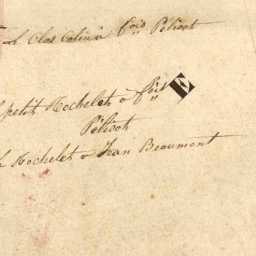 Clos Colin à fois Pelisot
petit Rochelet à fois
Pelisot
Rochelet à Jean Beaumont